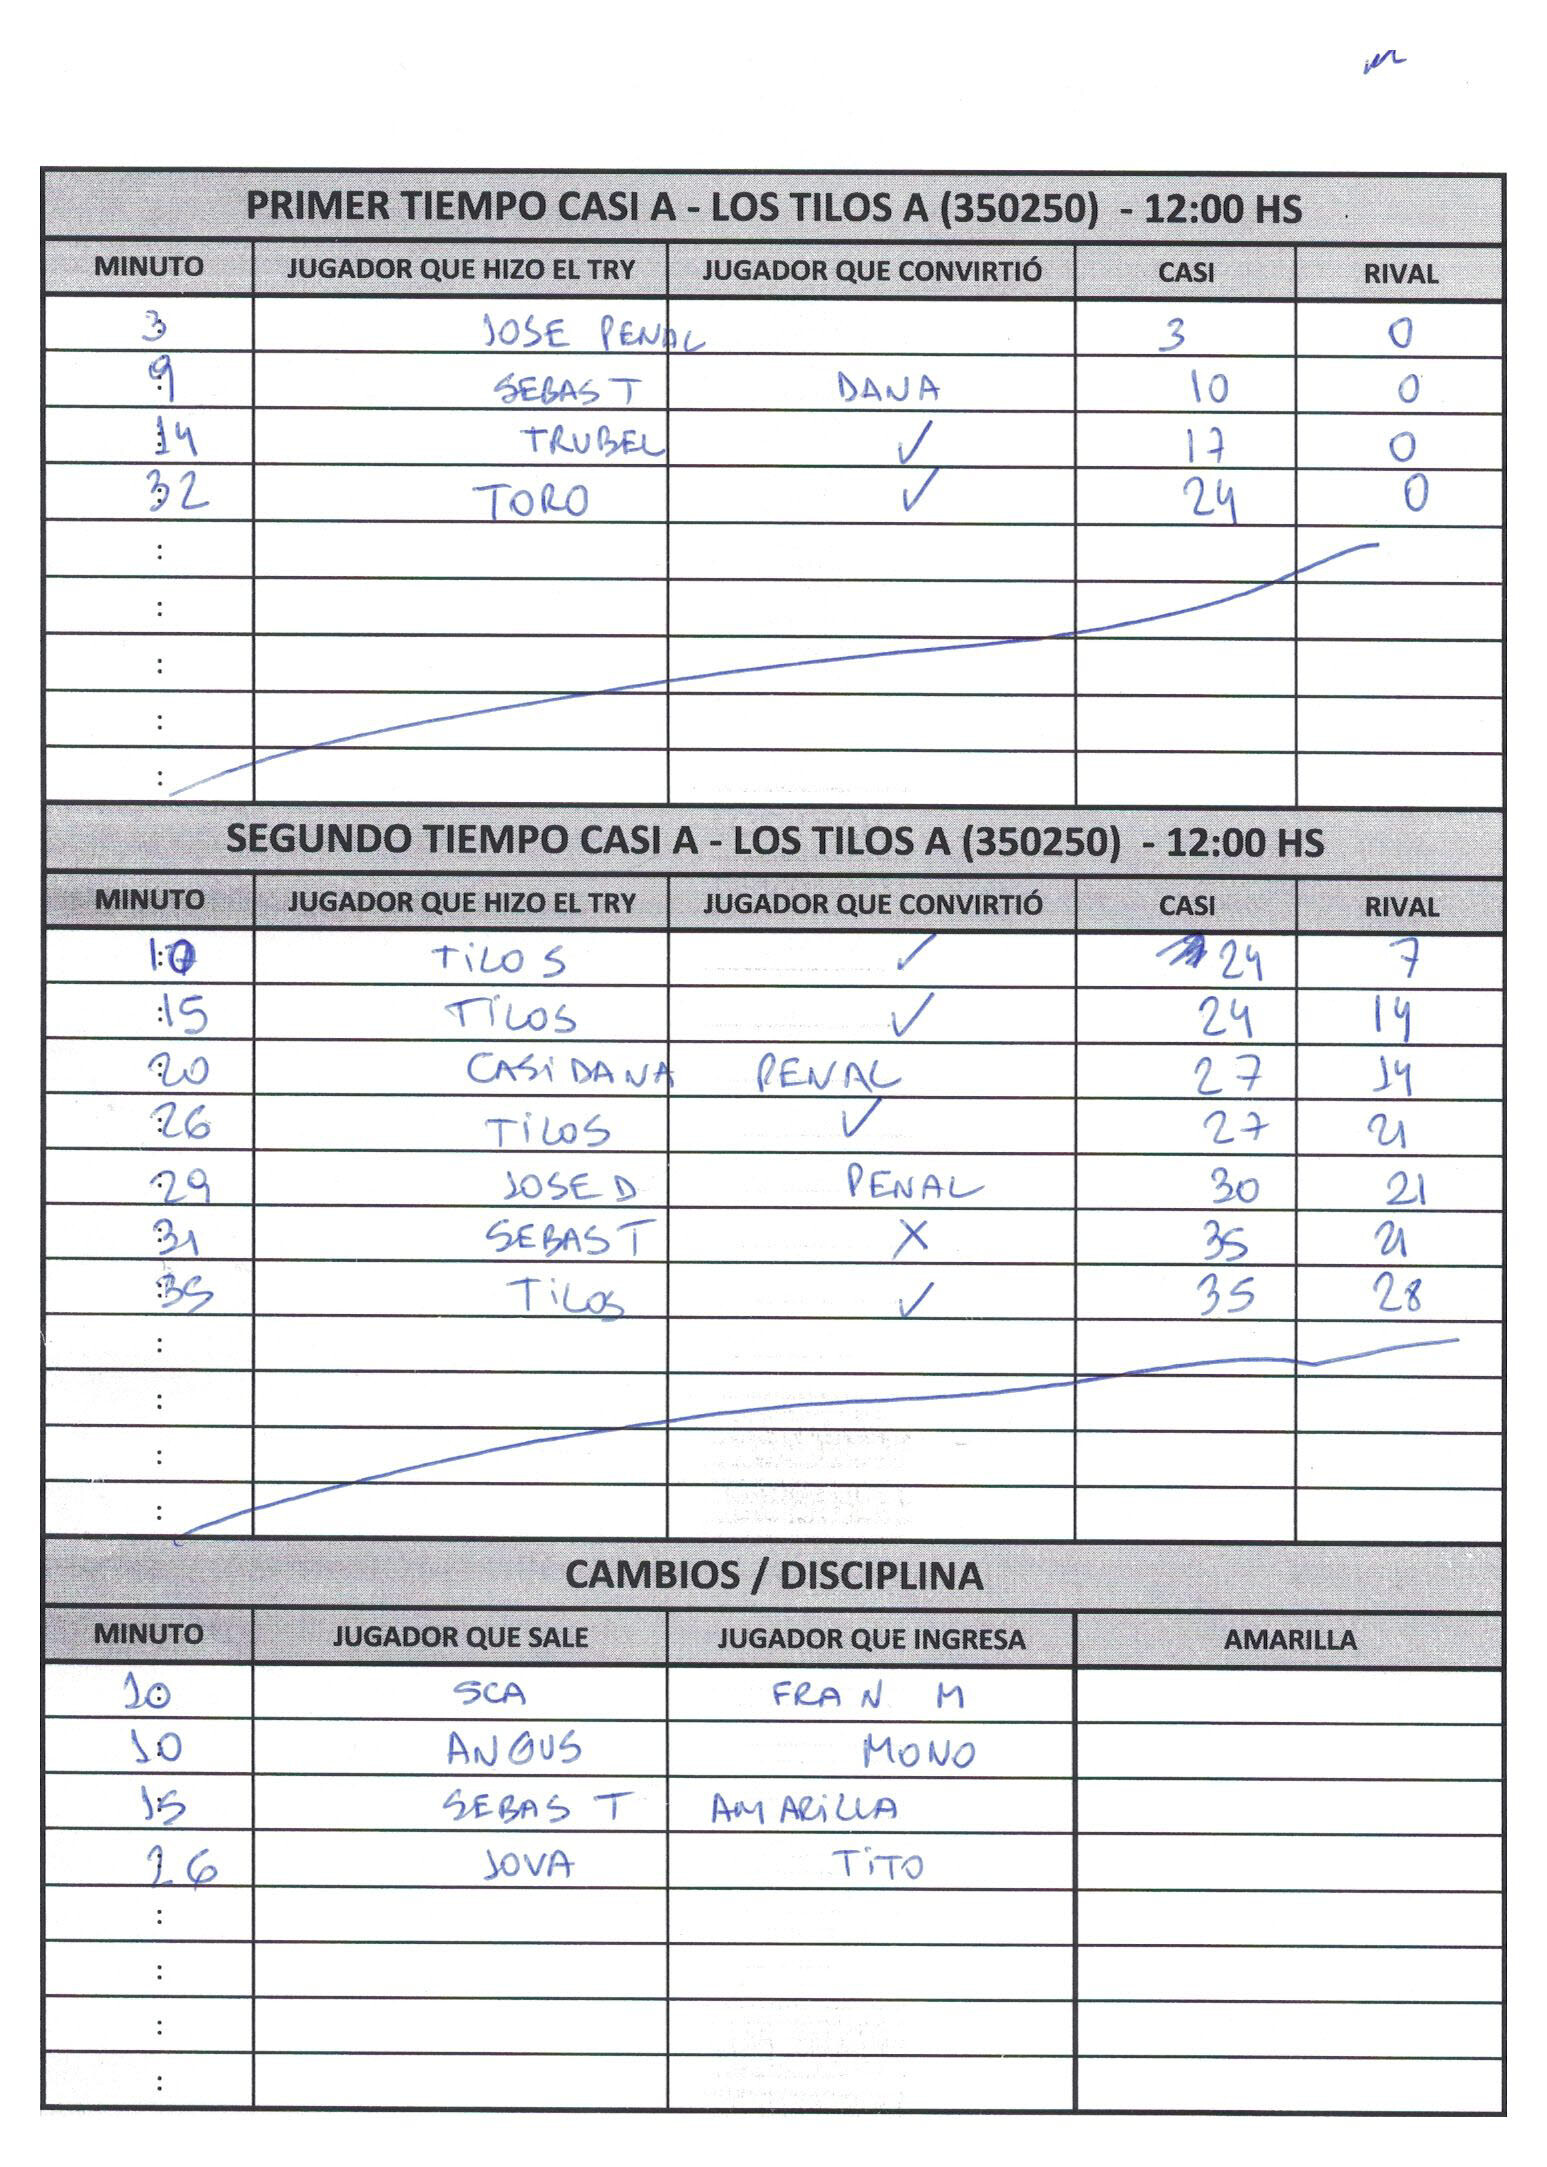 PRIMER TIEMPO CASI A - LOS TILOS A (350250) - 12:00 HS
MINUTO JUGADOR QUE HIZO EL TRY JUGADOR QUE CONVIRTIÓ CASI RIVAL
3 JOSE PENAL 3 0
9 SEBAS T DANA 10 0
14 TRUBEL ✓ 17 0
32 TORO ✓ 24 0
:
:
:
:
:
SEGUNDO TIEMPO CASI A - LOS TILOS A (350250) - 12:00 HS
MINUTO JUGADOR QUE HIZO EL TRY JUGADOR QUE CONVIRTIÓ CASI RIVAL
10 TiLOS ✓ 24 7
:15 TiLOS ✓ 24 14
20 CASi DANA PENAL 27 14
26 TiLOS ✓ 27 21
29 JOSE D PENAL 30 21
31 SEBAS T X 35 21
35 TiLos ✓ 35 28
:
:
:
:
CAMBIOS / DISCIPLINA
MINUTO JUGADOR QUE SALE JUGADOR QUE INGRESA AMARILLA
10 SCA FRAN M
10 ANGUS MONO
15 SEBAS T AMARiLLA
26 JOVA TiTO
:
:
:
: